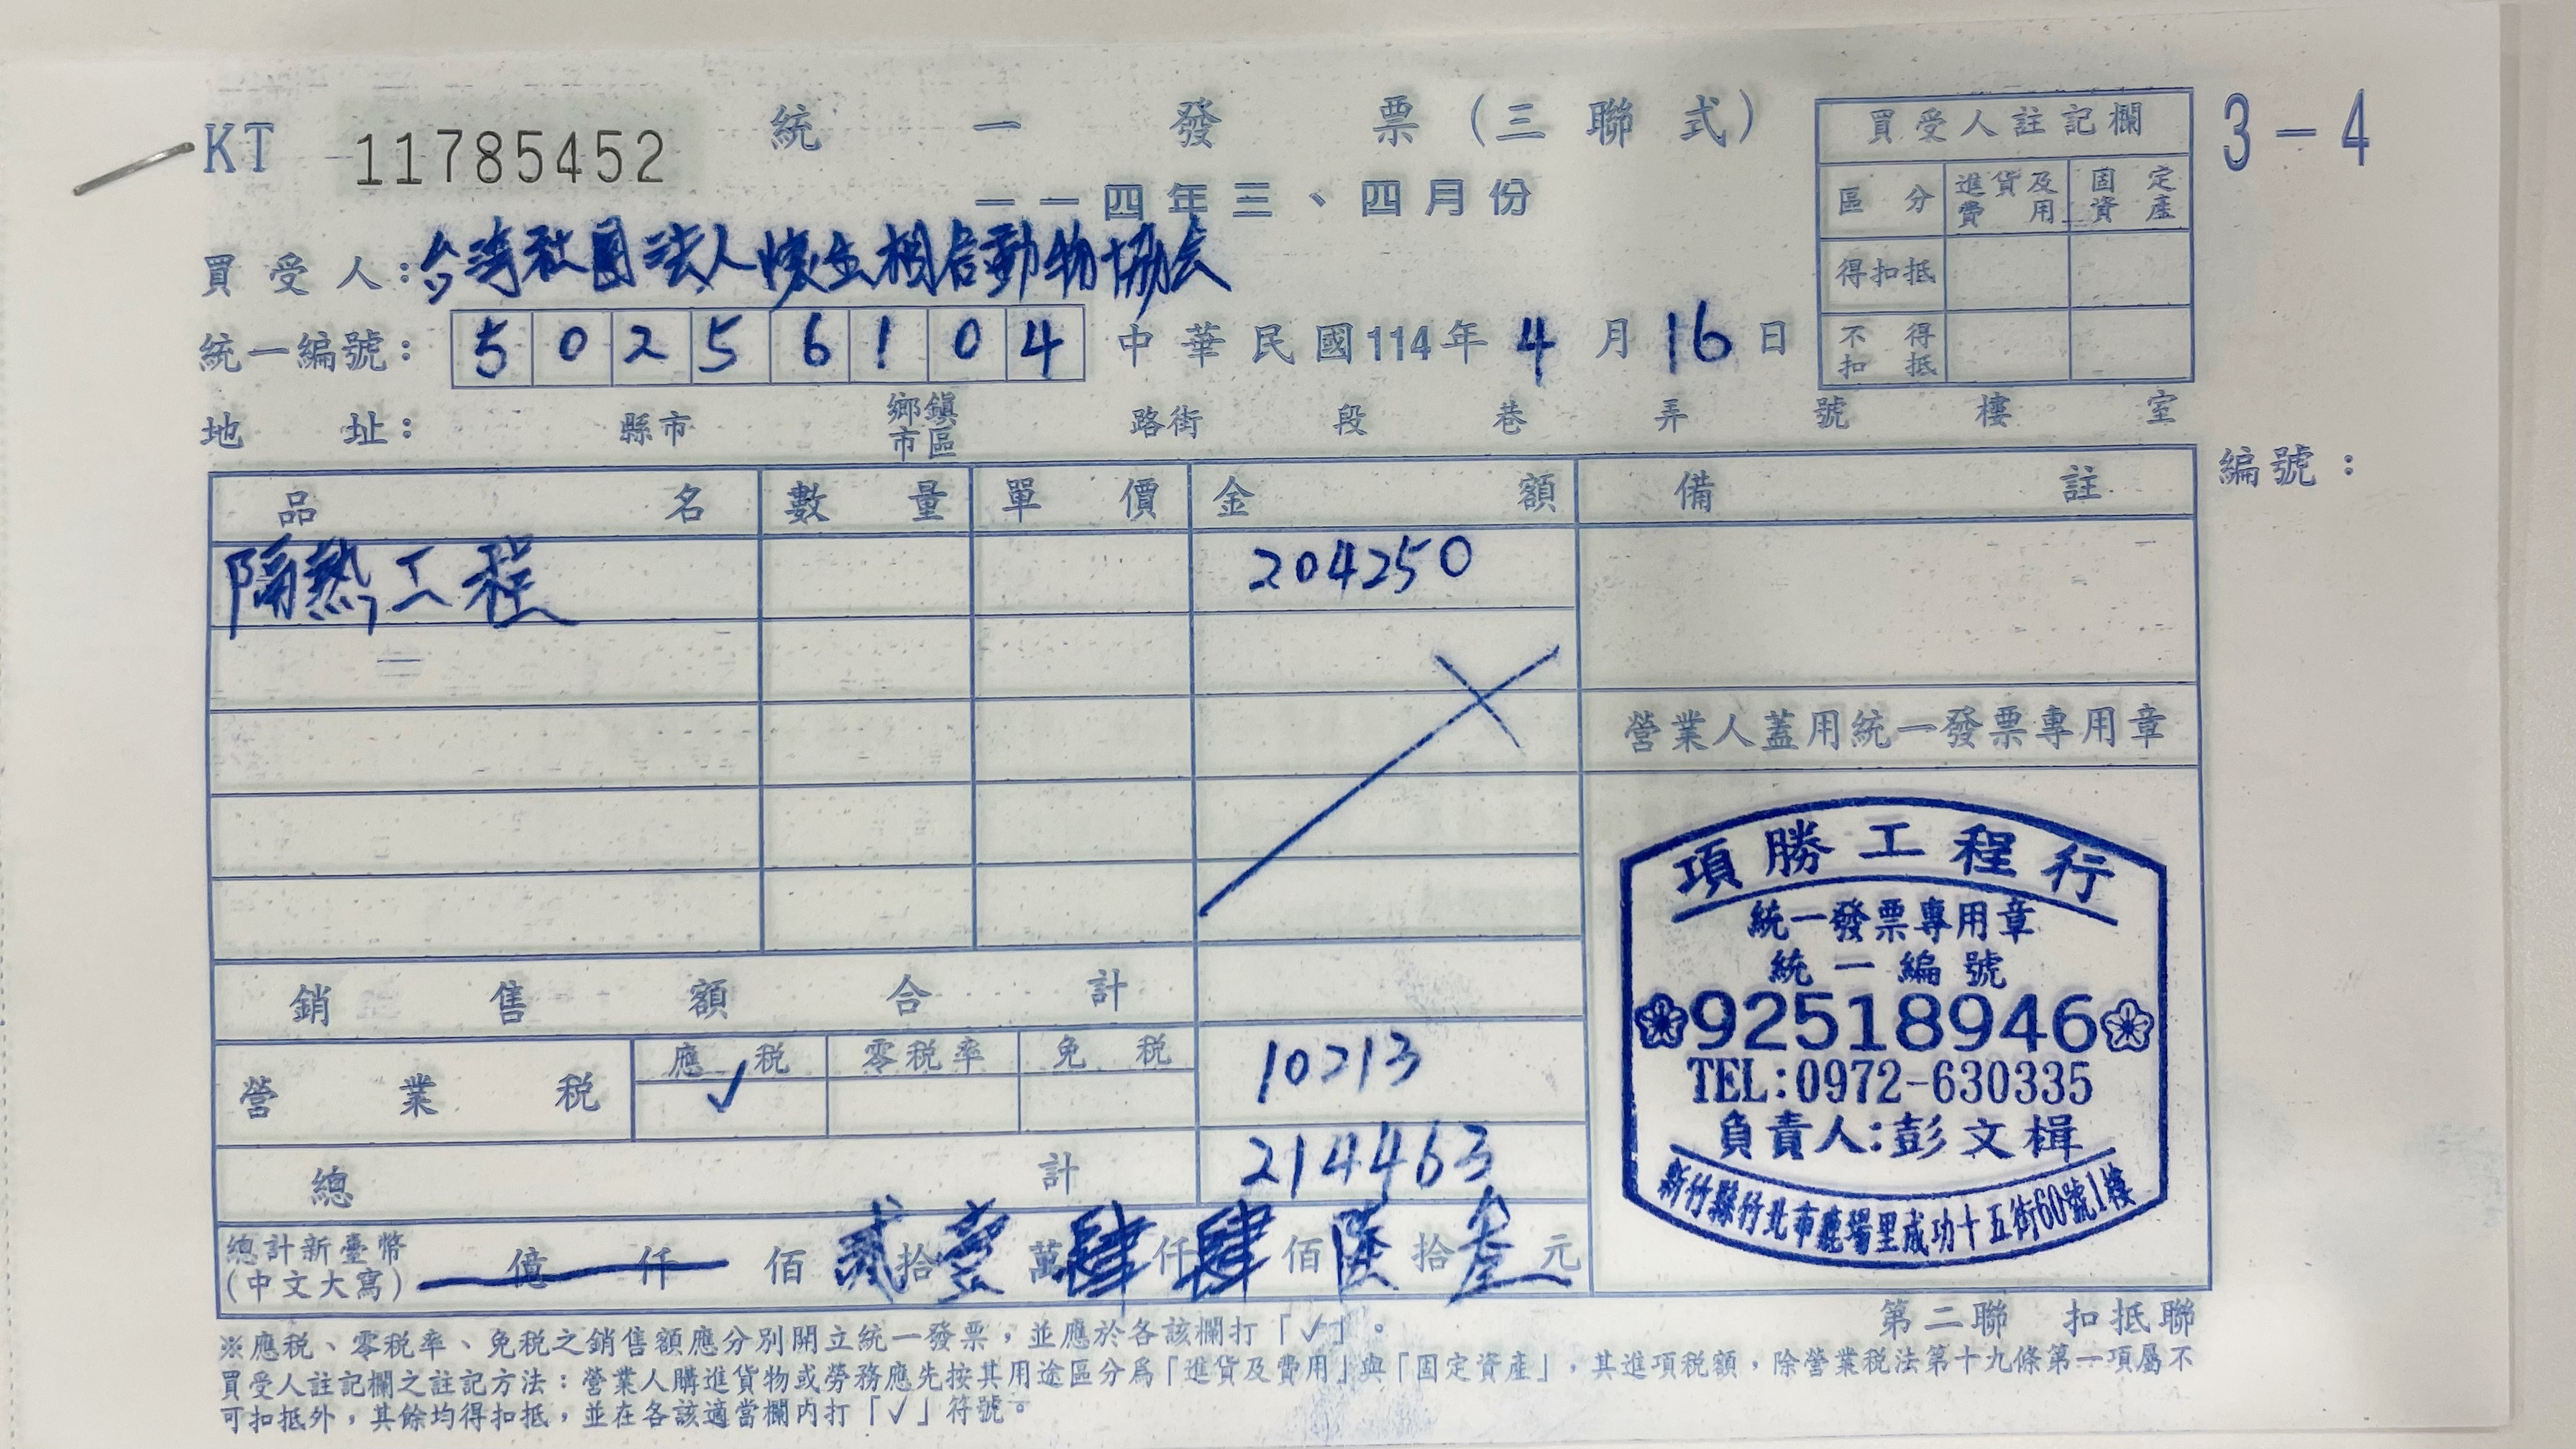 KT 11785452 統一發票(三聯式)
3-4
一一四年三、四月份
買受人註記欄
區分 進貨及費用 固定資產
得扣抵
不得扣抵
買受人:台湾社團法人懷生相信動物協会
統一編號: 50256104 中華民國114年4月16日
地址: 縣市 鄉鎮市區 路街 段 巷 弄 號 樓 室
編號:
品名 數量 單價 金額 備註
隔熱工程 204250
營業人蓋用統一發票專用章
項勝工程行
統一發票專用章
統一編號
92518946
TEL:0972-630335
負責人:彭文楫
新竹縣竹北市鹿場里成功十五街60號1樓
銷售額合計
營業稅 應稅 √ 零稅率 免稅 10213
總計 214463
總計新臺幣(中文大寫) 億 仟 佰 貳拾壹萬肆仟肆佰陸拾叁元
第二聯 扣抵聯
※應稅、零稅率、免稅之銷售額應分別開立統一發票,並應於各該欄打「√」。
買受人註記欄之註記方法:營業人購進貨物或勞務應先按其用途區分為「進貨及費用」與「固定資產」,其進項稅額,除營業稅法第十九條第一項屬不
可扣抵外,其餘均得扣抵,並在各該適當欄內打「√」符號。